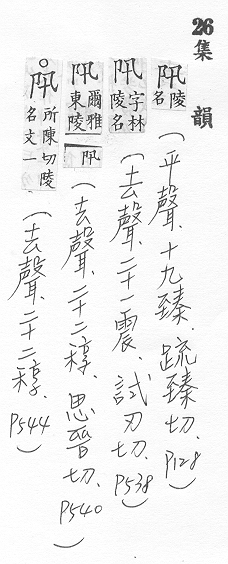 26 集韻
阠 陵名 (平聲、十九臻、疏臻切、P128)
阠 字林陵名 (去聲、二十一震、試刃切、P538)
阠 爾雅東陵阠 (去聲、二十二稕、思晉切、P540)
○阠 所陳切陵名文一 (去聲、二十二稕、P544)